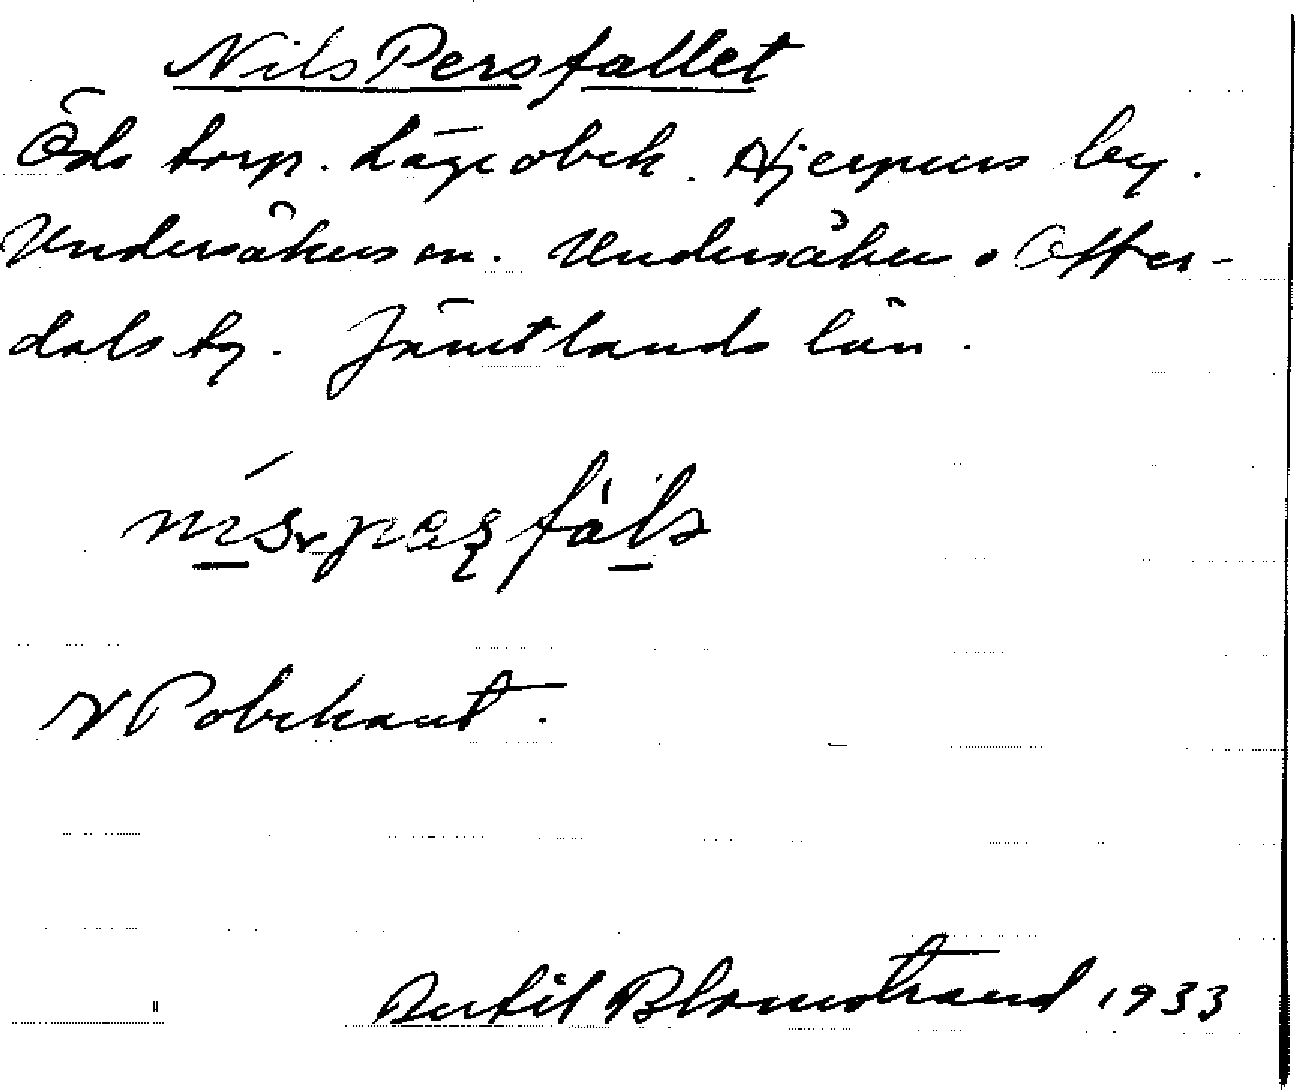 Nils Persfallet
Öde torp. Läge obek. Hjerpens by.
Undersåkers sn. Undersåker o Offer-
dals tg. Jämtlands län.
N P obekant.
Bertil Blomstrand 1933